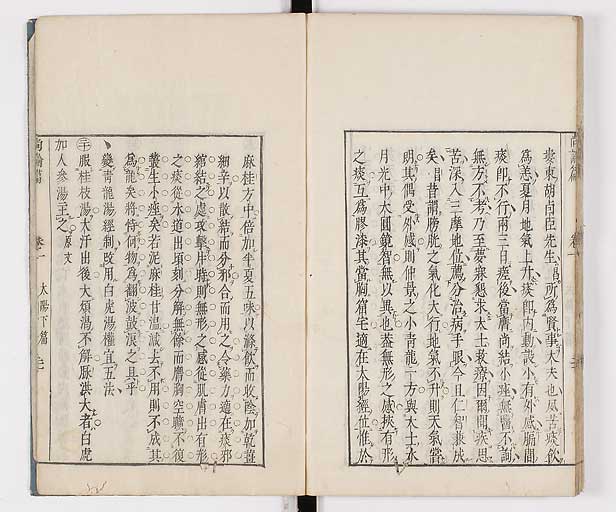 婁東胡卣臣先生昌所為賢士大夫也夙苦痰飲
為恙夏月地氣上升痰即內動設小有外感膈間
痰即不行兩三日瘥後當膺尚結小痤無醫不詢
無方不考乃至夢寐懇求大士救療因爾閒疾思
苦深入三摩地位薦分治病手眼今且仁智兼成
矣昌昔謂膀胱之氣化大行地氣不升則天氣常
朗其偶受外感則仲景之小青龍一方與大士水
月光中大圓鏡智無以異也蓋無形之感挾有形
之痰互為膠漆其當胸窟宅適在太陽經位惟於
麻桂方中倍加半夏五味以滌飲而收陰加乾薑
細辛以散結而分邪合而用之令藥力適在痰邪
綰結之處攻擊片時則無形之感從肌膚出有形
之痰從水道出頃刻分解無餘而膺胸空曠不復
叢生小痤矣若泥麻桂甘溫減去不用則不成其
為龍矣將恃何物為翻波鼓浪之具乎
變青龍湯經制改用白虎湯權宜五法
服桂枝湯大汗出後大煩渴不解脈洪大者白虎
加人參湯主之原文
尚論篇 卷一 太陽下篇